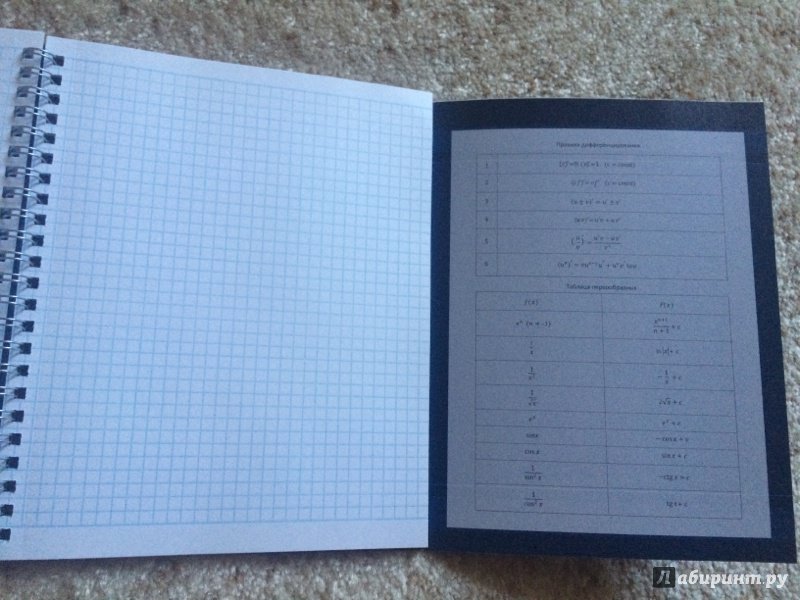 Правила дифференцирования
1 (c)'=0; (x)'=1 (c = const)
2 (cf)'= cf' (c = const)
3 (u ± v)' = u' ± v'
4 (uv)'=u'v + uv'
5 (u/v)' = (u'v − uv')/v²
6
Таблица первообразных
f(x) F(x)
xⁿ (n ≠ -1) xⁿ⁺¹/(n + 1) + c
1/x ln|x|+ c
1/x² −1/x + c
1/√x 2√x + c
eˣ eˣ + c
sinx −cosx + c
cos x sin x + c
1/sin² x −ctg x + c
1/cos² x tg x + c
Лабиринт.ру